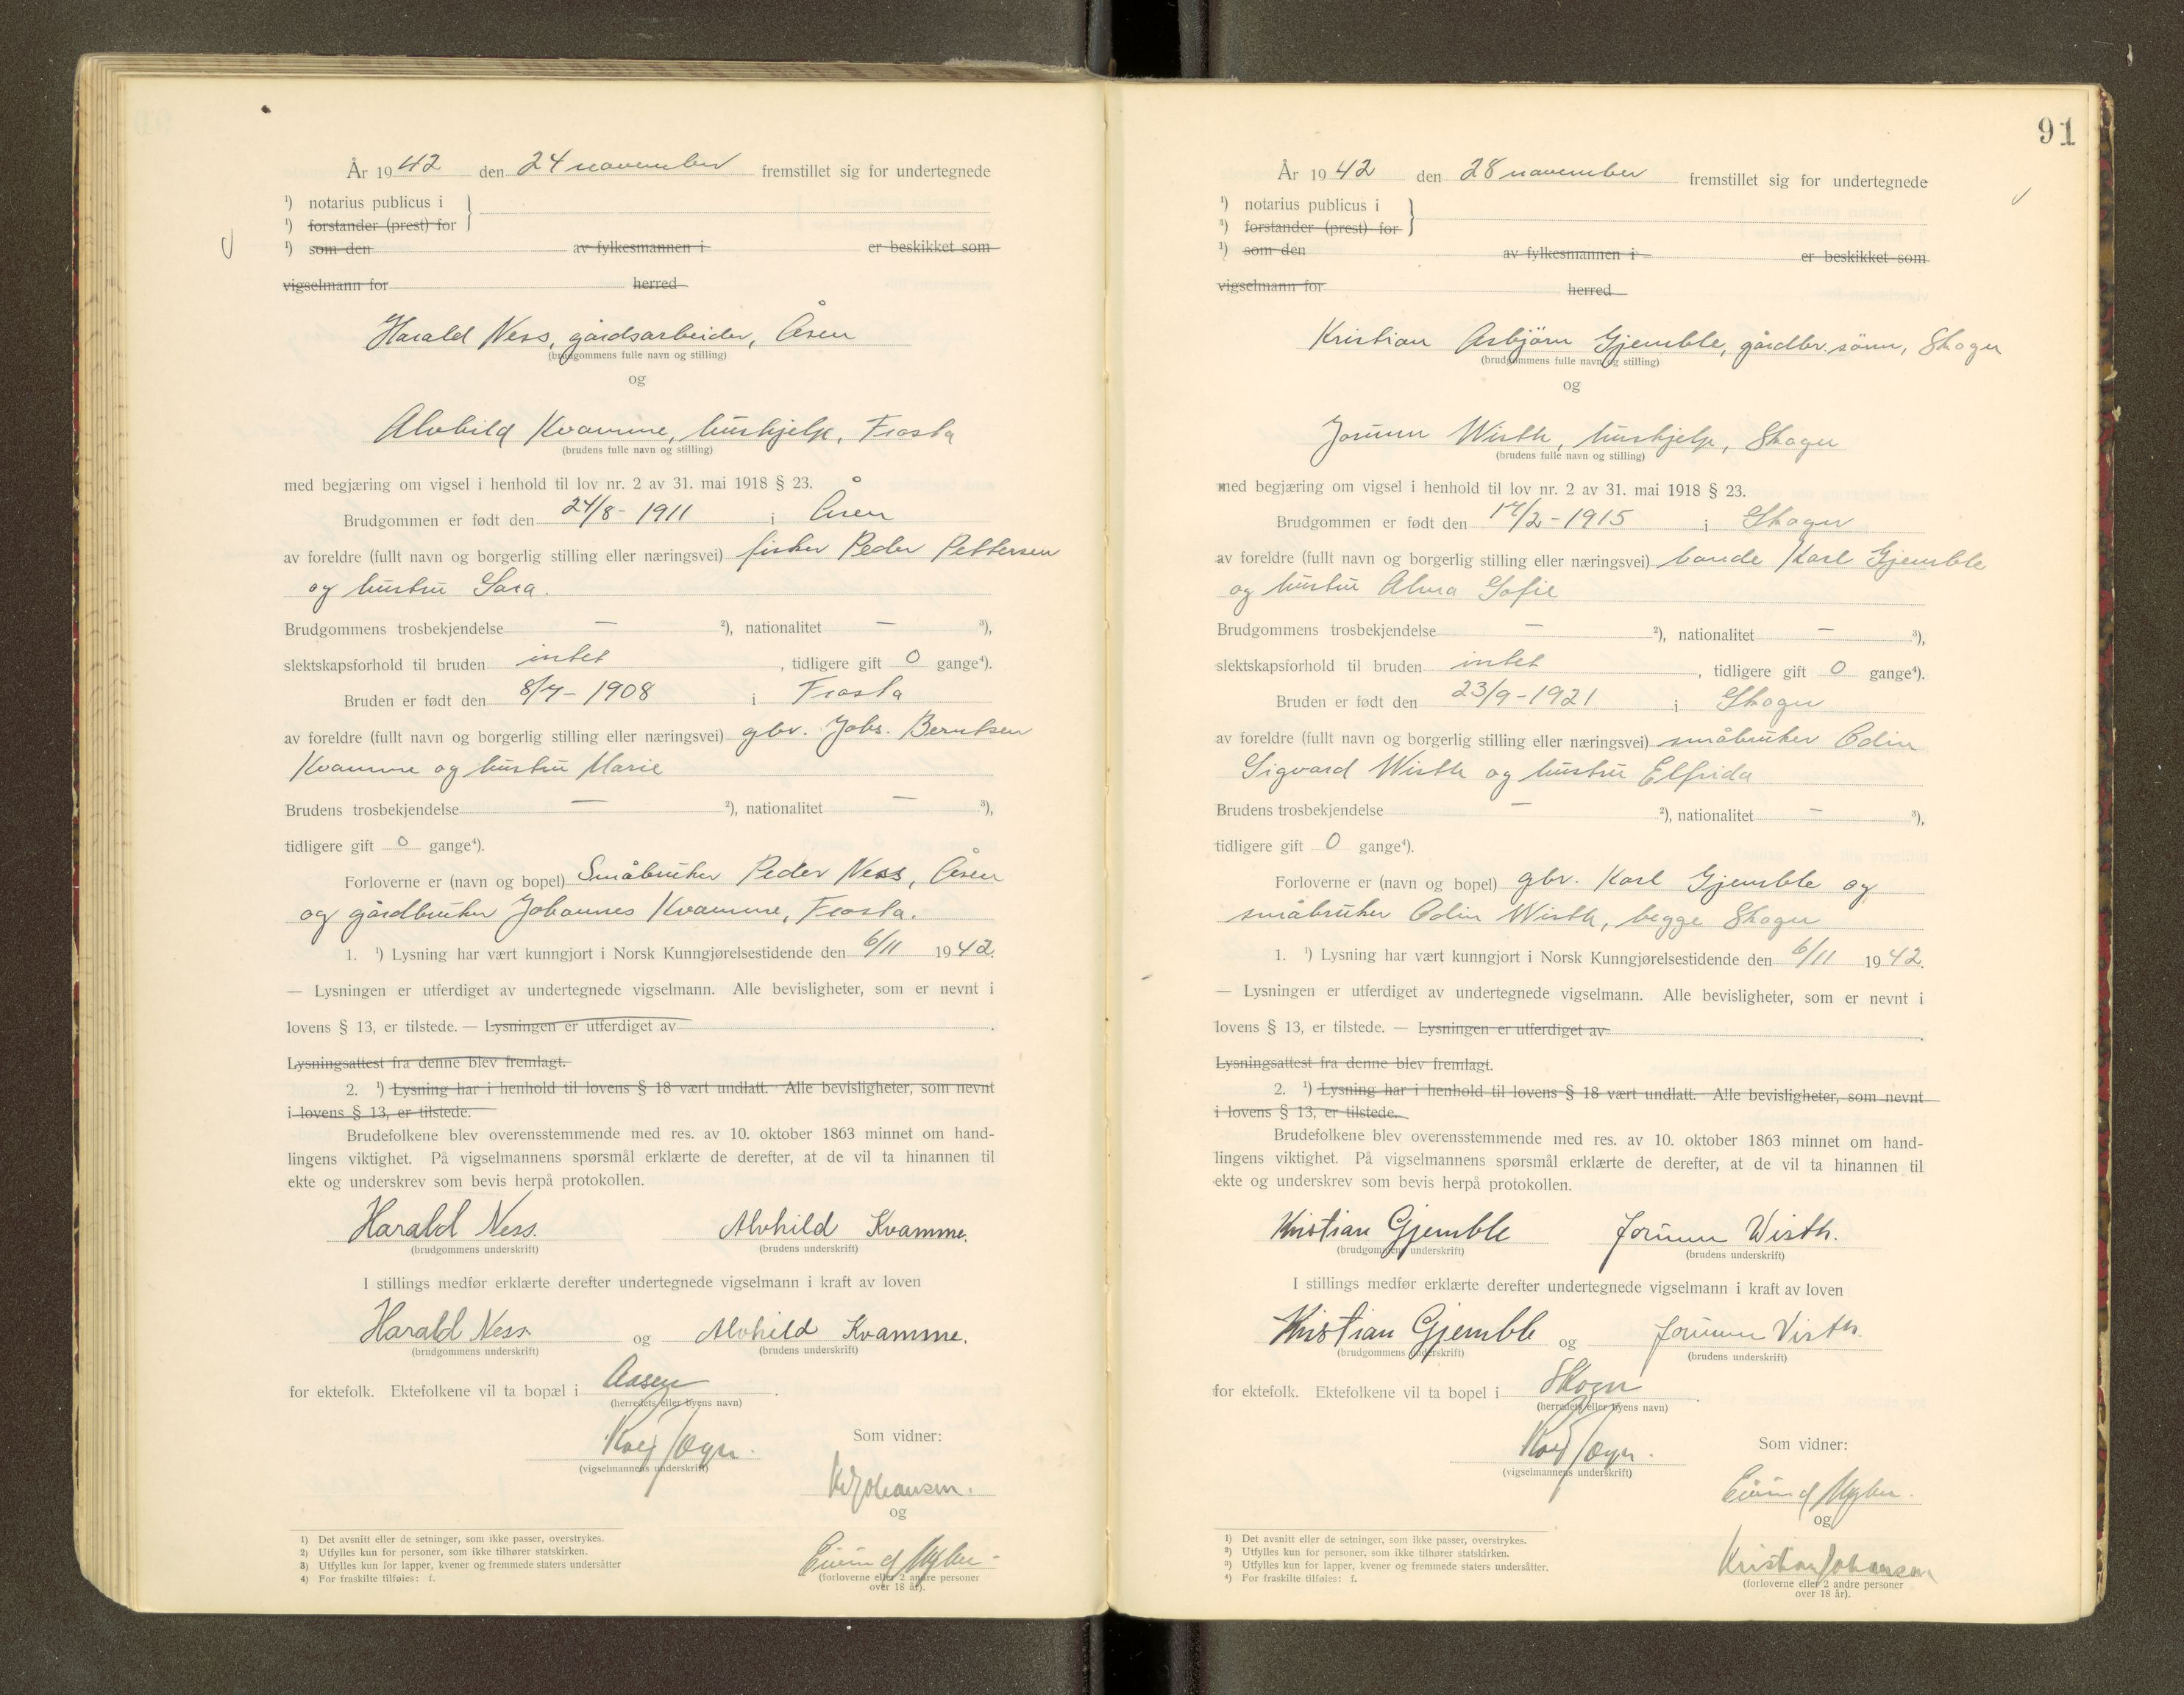 År 1942 den 24 november fremstillet sig for undertegnede
¹) notarius publicus i
¹) forstander (prest) for
¹) som den av fylkesmannen i er beskikket som
vigselmann for herred
Harald Ness, gårdsarbeider, Åsen
(brudgommens fulle navn og stilling)
og
Alvhild Kvamme, hushjelp, Frosta
(brudens fulle navn og stilling)
med begjæring om vigsel i henhold til lov nr. 2 av 31. mai 1918 § 23.
Brudgommen er født den 24/8 - 1911 i Åsen
av foreldre (fullt navn og borgerlig stilling eller næringsvei) fisker Peder Pettersen
og hustru Sara.
Brudgommens trosbekjendelse — ²), nationalitet — ³),
slektskapsforhold til bruden intet, tidligere gift 0 gange⁴).
Bruden er født den 8/7 - 1908 i Frosta
av foreldre (fullt navn og borgerlig stilling eller næringsvei) gbr. Johs. Berntsen
Kvamme og hustru Marie
Brudens trosbekjendelse — ²), nationalitet — ³),
tidligere gift 0 gange⁴).
Forloverne er (navn og bopel) Småbruker Peder Ness, Åsen
og gårdbruker Johannes Kvamme, Frosta.
1. ¹) Lysning har vært kunngjort i Norsk Kunngjørelsestidende den 6/11 1942.
— Lysningen er utferdiget av undertegnede vigselmann. Alle bevisligheter, som er nevnt i
lovens § 13, er tilstede. — Lysningen er utferdiget av .
Lysningsattest fra denne blev fremlagt.
2. ¹) Lysning har i henhold til lovens § 18 vært undlatt. Alle bevisligheter, som nevnt
i lovens § 13, er tilstede.
Brudefolkene blev overensstemmende med res. av 10. oktober 1863 minnet om hand-
lingens viktighet. På vigselmannens spørsmål erklærte de derefter, at de vil ta hinannen til
ekte og underskrev som bevis herpå protokollen.
Harald Ness. Alvhild Kvamme.
(brudgommens underskrift) (brudens underskrift)
I stillings medfør erklærte derefter undertegnede vigselmann i kraft av loven
Harald Ness og Alvhild Kvamme.
(brudgommens underskrift) (brudens underskrift)
for ektefolk. Ektefolkene vil ta bopæl i Aasen .
(herredets eller byens navn)
Som vidner:
(vigselmannens underskrift)
Johansen.
og
(forloverne eller 2 andre personer
over 18 år).
1) Det avsnitt eller de setninger, som ikke passer, overstrykes.
2) Utfylles kun for personer, som ikke tilhører statskirken.
3) Utfylles kun for lapper, kvener og fremmede staters undersåtter
4) For fraskilte tilføies: f.
91
År 1942 den 28 november fremstillet sig for undertegnede
¹) notarius publicus i
¹) forstander (prest) for
¹) som den av fylkesmannen i er beskikket som
vigselmann for herred
Kristian Asbjörn Gjemble, gårdbr. sönn, Skogn
(brudgommens fulle navn og stilling)
og
Jorunn Wisth, hushjelp, Skogn
(brudens fulle navn og stilling)
med begjæring om vigsel i henhold til lov nr. 2 av 31. mai 1918 § 23.
Brudgommen er født den 14/2 - 1915 i Skogn
av foreldre (fullt navn og borgerlig stilling eller næringsvei) bonde Karl Gjemble
og hustru Alma Sofie
Brudgommens trosbekjendelse — ²), nationalitet — ³),
slektskapsforhold til bruden intet, tidligere gift 0 gange⁴).
Bruden er født den 23/9 - 1921 i Skogn
av foreldre (fullt navn og borgerlig stilling eller næringsvei) småbruker Odin
Sigvard Wisth og hustru Elfrida
Brudens trosbekjendelse — ²), nationalitet — ³),
tidligere gift 0 gange⁴).
Forloverne er (navn og bopel) gbr. Karl Gjemble og
småbruker Odin Wisth, begge Skogn
1. ¹) Lysning har vært kunngjort i Norsk Kunngjørelsestidende den 6/11 1942.
— Lysningen er utferdiget av undertegnede vigselmann. Alle bevisligheter, som er nevnt i
lovens § 13, er tilstede. — Lysningen er utferdiget av .
Lysningsattest fra denne blev fremlagt.
2. ¹) Lysning har i henhold til lovens § 18 vært undlatt. Alle bevisligheter, som nevnt
i lovens § 13, er tilstede.
Brudefolkene blev overensstemmende med res. av 10. oktober 1863 minnet om hand-
lingens viktighet. På vigselmannens spørsmål erklærte de derefter, at de vil ta hinannen til
ekte og underskrev som bevis herpå protokollen.
Kristian Gjemble Jorunn Wisth.
(brudgommens underskrift) (brudens underskrift)
I stillings medfør erklærte derefter undertegnede vigselmann i kraft av loven
Kristian Gjemble og Jorunn Wisth.
(brudgommens underskrift) (brudens underskrift)
for ektefolk. Ektefolkene vil ta bopel i Skogn .
(herredets eller byens navn)
Som vidner:
(vigselmannens underskrift)
og
Kristian Johansen
(forloverne eller 2 andre personer
over 18 år).
1) Det avsnitt eller de setninger, som ikke passer, overstrykes.
2) Utfylles kun for personer, som ikke tilhører statskirken.
3) Utfylles kun for lapper, kvener og fremmede staters undersåtter.
4) For fraskilte tilføies: f.